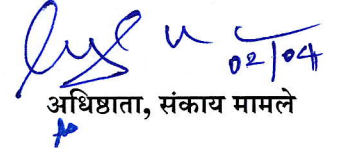 02/04
अधिष्ठाता, संकाय मामले